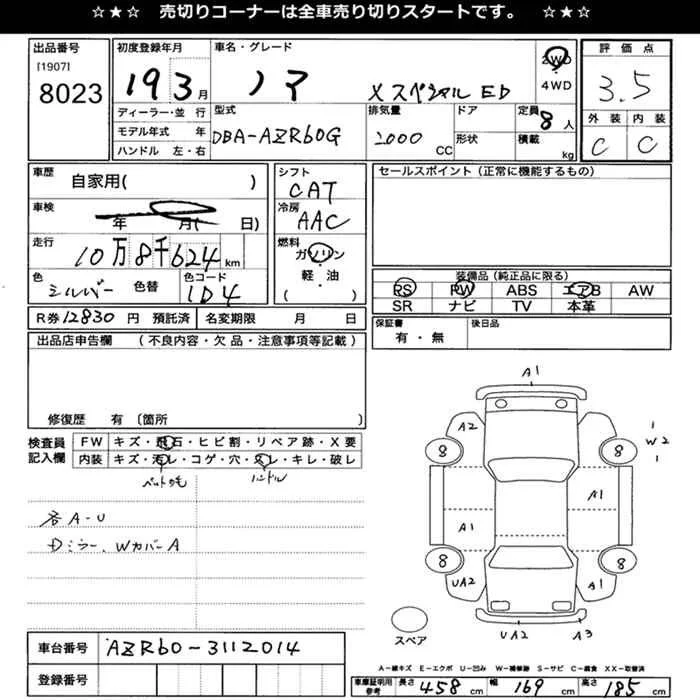 ☆★☆ 売切りコーナーは全車売り切りスタートです。 ☆★☆
出品番号
[1907]
8023
初度登録年月
19 3月
ディーラー・並行
モデル年式 年
ハンドル 左・右
車名・グレード
ノア Xスペシャル ED
2WD
4WD
型式
DBA-AZR60G
排気量
2000 CC
ドア
形状
定員 8人
積載 kg
評価点
3.5
外装 内装
C C
車歴
自家用( )
車検
年 月( 日)
走行
10万8千624 km
色
シルバー
色替
色コード
1D4
シフト
CAT
冷房
AAC
燃料
ガソリン
軽・油
( )
セールスポイント(正常に機能するもの)
装備品(純正品に限る)
PS PW ABS エアB AW
SR ナビ TV 本革
R券 12830 円 預託済 名変期限 月 日
保証書
有・無
後日品
出品店申告欄 (不良内容・欠品・注意事項等記載)
修復歴 有 〔箇所 〕
検査員
記入欄
FW キズ・飛石・ヒビ割・リペア跡・X要
内装 キズ・汚レ・コゲ・穴・スレ・キレ・破レ
ペットの毛 ハンドル
各A-U
Dミラー、WカバーA
A1
A2
W2
8 8
A1
A1
8 8
UA2
A1
UA2 A3
スペア
車台番号 AZR60-3112014
登録番号
A-線キズ E-エクボ U-凹み W-補修跡 S-サビ C-腐食 XX-取替済
車庫証明用
参考
長さ 458 cm 幅 169 cm 高さ 185 cm